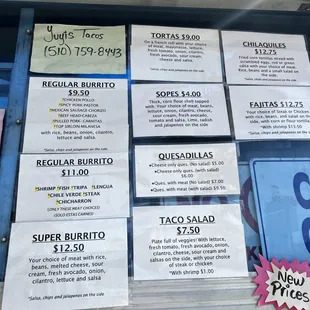 Yuyis Tacos
(510) 759-8443
REGULAR BURRITO
$9.50
*CHICKEN POLLO
*SPICY PORK PASTOR
*MEXICAN SAUSAGE CHORIZO
*BEEF HEAD CABEZA
*PULLED PORK CARNITAS
*TOP SIRLOIN MILANESA
with rice, beans, onion, cilantro,
lettuce
*Salsa, chips and jalapenos on the side
REGULAR BURRITO
$11.00
*SHRIMP *FISH *TRIPA *LENGUA
*CHILE VERDE *STEAK
*CHICHARRON
(ONLY THESE MEAT CHOICES)
(SOLO ESTAS CARNES)
SUPER BURRITO
$12.50
Your choice of meat with rice,
beans, melted cheese, sour
cream, fresh avocado, onion,
cilantro, lettuce and salsa
*Salsa, chips and jalapenos on the side
TORTAS $9.00
On a French roll with your choice
of meat, mayonnaise, lettuce,
fresh tomato, onion, cilantro,
fresh avocado, sour cream,
cheese and salsa
*Salsa, chips and jalapenos on the side
SOPES $4.00
Thick, corn flour shell topped
with your choice of meat,
beans, lettuce, onion, cheese,
sour cream, fresh avocado,
tomato and salsa, lime, radish
and jalapenos on the side
QUESADILLAS
•Cheese only ques. (No salad) $5.00
•Cheese only ques. (with salad)
$6.00
•Ques. with meat (No salad) $7.00
•Ques. with meat (with salad) $9.50
TACO SALAD
$7.50
Plate full of veggies! With lettuce,
fresh tomato, fresh avocado, onion,
cilantro, cheese, sour cream and
salsas on the side, with your choice
of steak or chicken
*With shrimp $1.00
CHILAQUILES
$12.75
Fried corn tortilla mixed with
scrambled eggs, red or green
salsa with your choice of meat.
Rice, beans and a small salad
on the side
*Salsa, chips and jalapenos on the side
FAJITAS $12.75
Your choice of Steak or Chicken
with rice, beans, and a small
salad, with corn or flour tortillas
*With shrimp $13.50
*Salsa, chips and jalapenos on the side
New
Prices